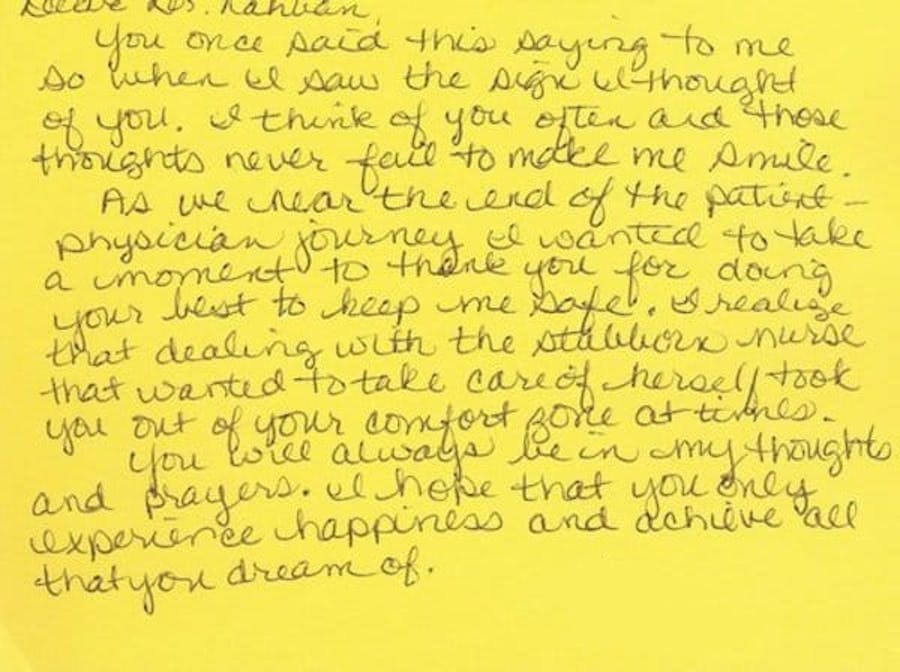 Dr.
You once said this saying to me
so when I saw the sign I thought
of you. I think of you often and those
thoughts never fail to make me smile.
As we near the end of the patient-
physician journey I wanted to take
a moment to thank you for doing
your best to keep me safe. I realize
that dealing with the stubborn nurse
that wanted to take care of herself took
you out of your comfort zone at times.
You will always be in my thoughts
and prayers. I hope that you only
experience happiness and achieve all
that you dream of.